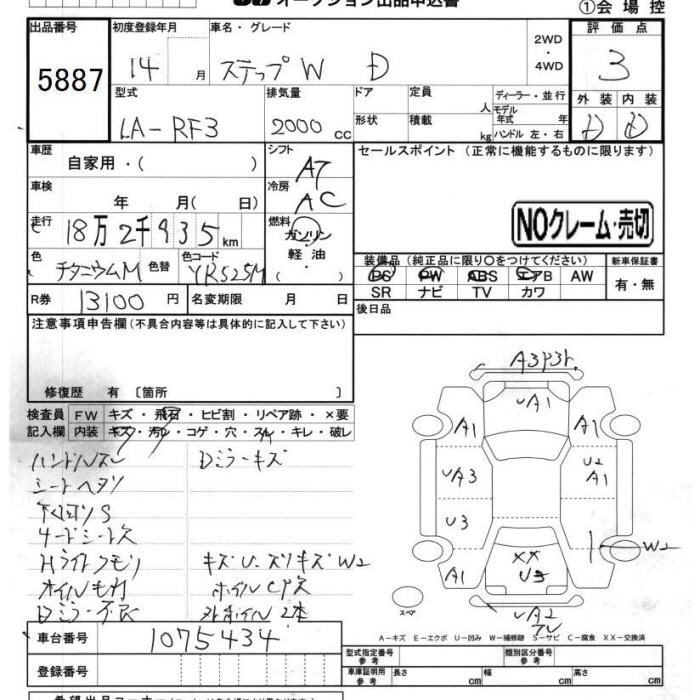 オークション出品申込書
①会場控
出品番号
5887
初度登録年月
14 月
車名・グレード
ステップW D
2WD
・
4WD
評価点
3
型式
LA-RF3
排気量
2000 cc
ドア
形状
定員 人
積載 kg
ディーラー・並行
モデル
年式 年
ハンドル 左・右
外装 内装
D D
車歴
自家用・( )
シフト
AT
セールスポイント (正常に機能するものに限ります)
車検
年 月( 日)
冷房
AC
走行
18万2千935km
燃料
ガソリン
軽油
( )
NOクレーム・売切
色
チタニウムM
色替
色コード
YR525M
装備品 (純正品に限り○をつけてください)
新車保証書
PS PW ABS エアB AW
有・無
SR ナビ TV カワ
R券
13100 円
名変期限 月 日
後日品
注意事項申告欄 (不具合内容等は具体的に記入して下さい)
修復歴 有 〔箇所 〕
検査員
記入欄
FW キズ・飛石・ヒビ割・リペア跡・×要
内装 キズ・汚れ・コゲ・穴・スレ・キレ・破レ
ハンドルスレ Dミラーキズ
シートヘタリ
下回りS
Hライトクモリ キズU、ズリキズW2
オイルモレ ホイルCPス
Dミラー不良 外ホイル2本
A3P3
UA1
A1 A1
UA3
U2
A1
U3
W2
XX
U3
A1
UA2
スペア
A-キズ E-エクボ U-凹み W-補修跡 S-サビ C-腐食 XX-交換済
車台番号
1075434
登録番号
型式指定番号
参考
類別区分番号
参考
車庫証明用
参考
長さ 幅 高さ